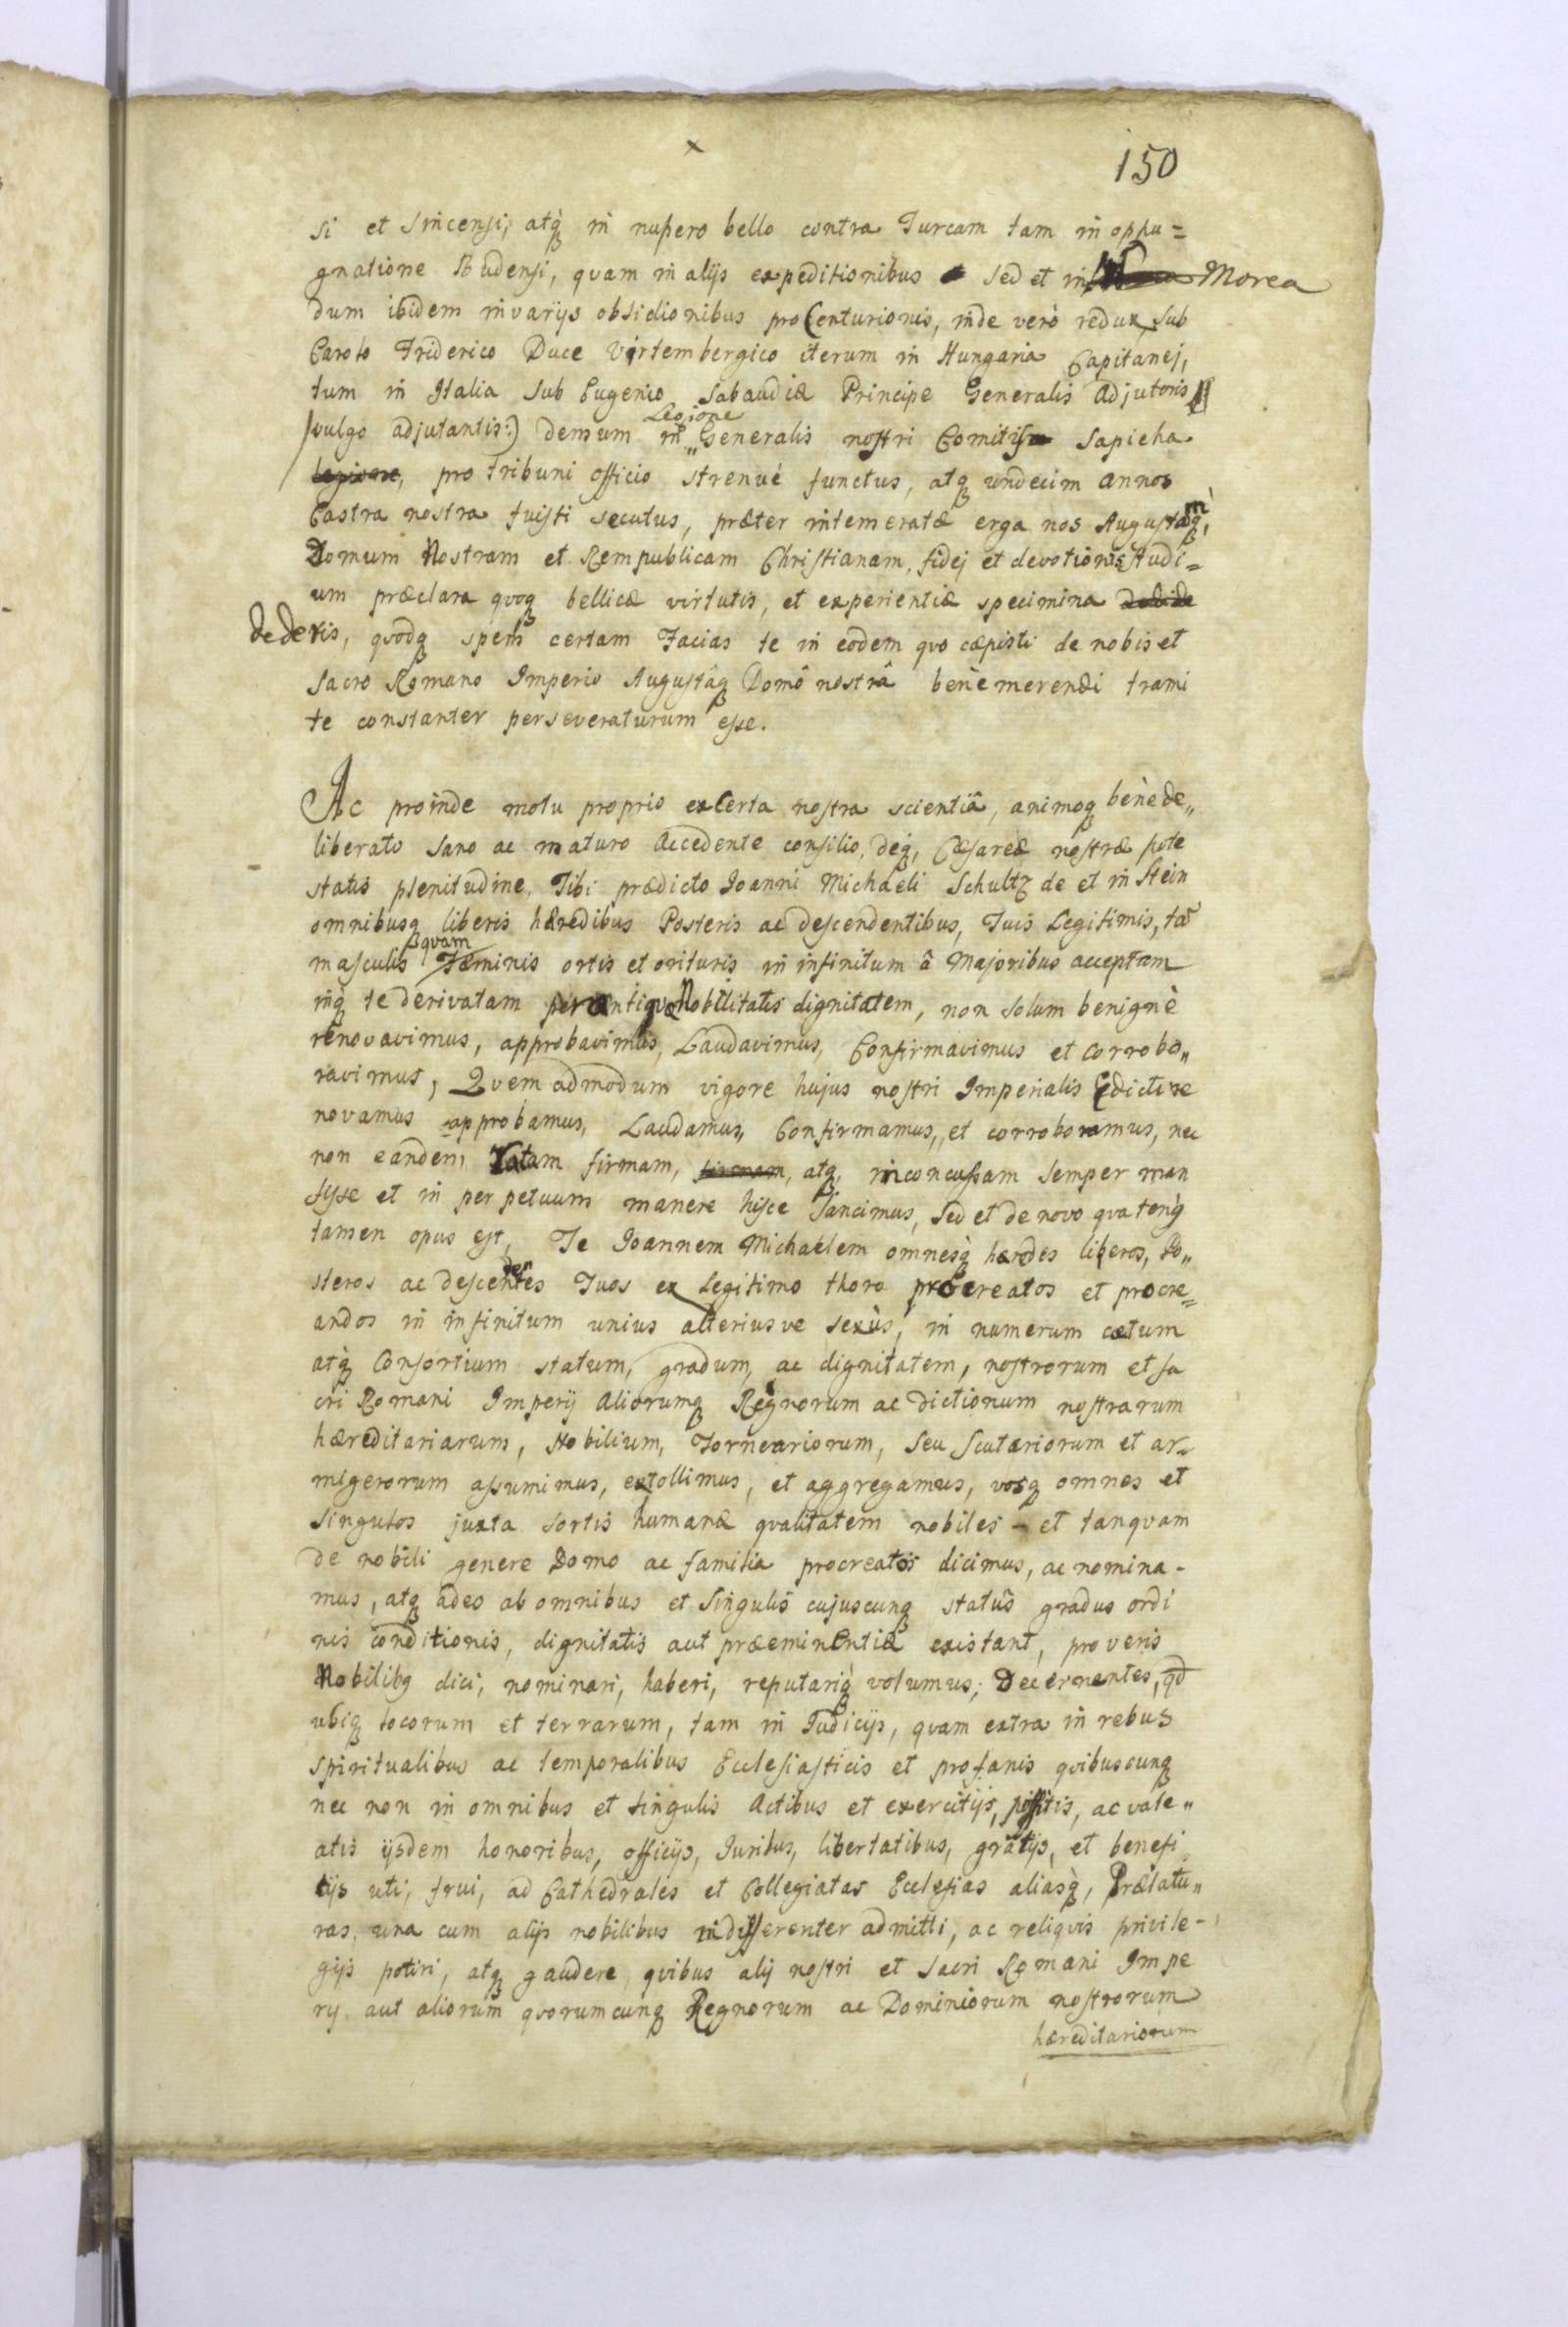 x
150
si et Sincensi, atq̀ in nupero bello contra Turcam tam in oppu=
gnatione Budensi, quam in alijs expeditionibus sed et in Morea
dum ibidem in varijs obsidionibus pro Centurionis, inde verò redux, sub
Carolo Friderico Duce Virtembergico iterum in Hungaria Capitanej,
tum in Italia sub Eugenio Sabaudiæ Principe Generalis Adjutoris
Legione
(vulgo adjutantis:) demum in „ Generalis nostri Comitis Sapieha
legione, pro tribuni officio strenué functus, atq undecim annos
Castra nostra fuisti secutus, præter intemeratæ erga nos Augustamq̀,
Domum Nostram et Rempublicam Christianam, fidej et devotionis studi=
um præclara quoq bellicæ virtutis, et experientiæ specimina
dederis, quodq spem certam Facias te in eodem quo cæpisti de nobis et
Sacro Romano Imperio Augustâq Domô nostrâ benè merendi trami
te constanter perseveraturum esse.
Ac proinde motu proprio ex Certa nostra scientiâ, animoq benè de„
liberato sano ac maturo Accedente consilio, deq̀, Cæsareæ nostræ pote
statis plenitudine, Tibi prædicto Joanni Michaeli Schultz de et in Stein
omnibusq liberis hæredibus Posteris ac descendentibus, Tuis Legitimis, tã
quam
masculis Fæminis ortis et orituris in infinitum â Majoribus acceptam
inq̀ te derivatam perantiquæ Nobilitatis dignitatem, non solum benignè
renovavimus, approbavimus, Laudavimus, Confirmavimus et corrobo„
ravimus, Quem admodum vigore hujus nostri Imperialis Edicti re
novamus approbamus, Laudamus, Confirmamus, et corroboramus, nec
non eandem ratam firmam, firmam, atq, inconcussam semper man
sisse et in perpetuum manere hisce sancimus, sed et de novo quatenq̀
tamen opus est, Te Joannem Michaëlem omnesq̀ hærodes liberos, Po„
den
steros ac descentes Tuos ex Legitimo thoro procreatos et procre=
andos in infinitum unius alteriusve sexùs, in numerum cætum
atq̀ Consortium statum, gradum, ac dignitatem, nostrorum et sa
cri Romani Imperij Aliorumq Regnorum ac dictionum nostrarum
hæreditariarum, Nobilium, Torneariorum, seu scutariorum et ar-
migerorum assumimus, extollimus, et aggregamus, vosq omnes et
singulos juxta sortis humanæ qvalitatem nobiles - et tanquam
de nobili genere Domo ac familia procreatos dicimus, ac nomina-
mus, atq adeo ab omnibus et singulis cujuscunq statûs gradus ordi
nis conditionis, dignitatis aut præeminentiæ existant, pro veris
Nobilibq dici, nominari, haberi, reputariq̀ volumus; Decernentes, qd
ubiq locorum et terrarum, tam in Judicijs, quam extra in rebus
spiritualibus ac temporalibus Ecclesiasticis et profanis quibuscunq
nec non in omnibus et singulis Actibus et exercitijs, possitis, ac vale„
atis ijsdem honoribus, officijs, Juribus, libertatibus, gratijs, et benefi
tijs uti, frui, ad Cathedrales et Collegiatas Ecclesias aliasq̀, Prælatu„
ras, una cum alijs nobilibus indifferenter admitti, ac reliquis privile-
gijs potiri, atq gaudere, quibus alij nostri et Sacri Romani Impe
rij, aut aliorum quorumcunq Regnorum ac Dominiorum nostrorum
hæreditariorum